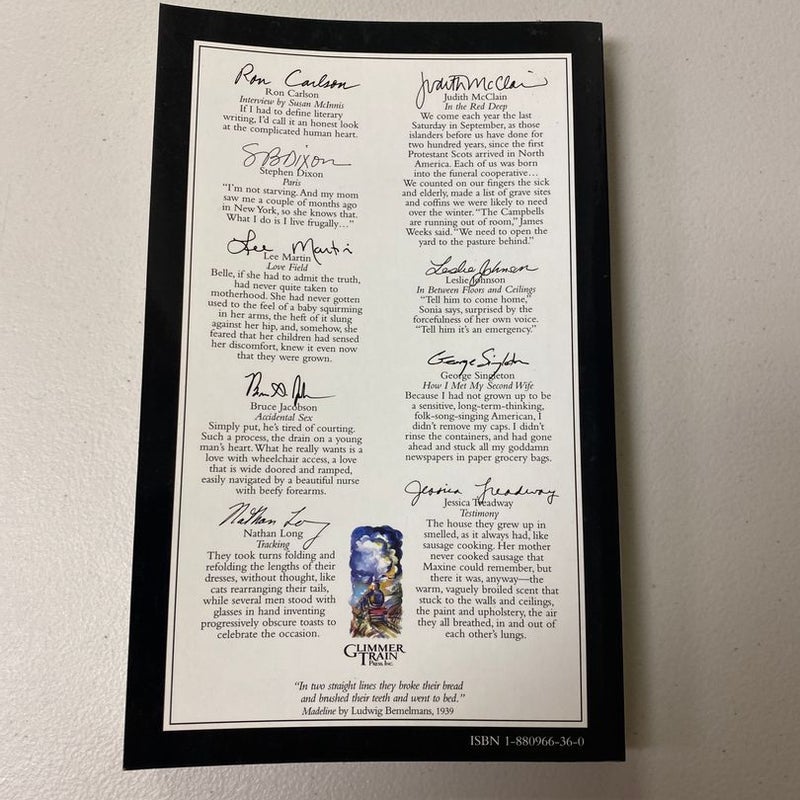 Ron Carlson
Ron Carlson
Interview by Susan McInnis
If I had to define literary
writing, I'd call it an honest look
at the complicated human heart.
SBDixon
Stephen Dixon
Paris
"I'm not starving. And my mom
saw me a couple of months ago
in New York, so she knows that.
What I do is I live frugally…"
Lee Martin
Lee Martin
Love Field
Belle, if she had to admit the truth,
had never quite taken to
motherhood. She had never gotten
used to the feel of a baby squirming
in her arms, the heft of it slung
against her hip, and, somehow, she
feared that her children had sensed
her discomfort, knew it even now
that they were grown.
Bruce Jacobson
Accidental Sex
Simply put, he's tired of courting.
Such a process, the drain on a young
man's heart. What he really wants is a
love with wheelchair access, a love
that is wide doored and ramped,
easily navigated by a beautiful nurse
with beefy forearms.
Nathan Long
Nathan Long
Tracking
They took turns folding and
refolding the lengths of their
dresses, without thought, like
cats rearranging their tails,
while several men stood with
glasses in hand inventing
progressively obscure toasts to
celebrate the occasion.
Judith McClain
Judith McClain
In the Red Deep
We come each year the last
Saturday in September, as those
islanders before us have done for
two hundred years, since the first
Protestant Scots arrived in North
America. Each of us was born
into the funeral cooperative…
We counted on our fingers the sick
and elderly, made a list of grave sites
and coffins we were likely to need
over the winter. "The Campbells
are running out of room," James
Weeks said. "We need to open the
yard to the pasture behind."
Leslie Johnson
Leslie Johnson
In Between Floors and Ceilings
"Tell him to come home,"
Sonia says, surprised by the
forcefulness of her own voice.
"Tell him it's an emergency."
George Singleton
George Singleton
How I Met My Second Wife
Because I had not grown up to be
a sensitive, long-term-thinking,
folk-song-singing American, I
didn't remove my caps. I didn't
rinse the containers, and had gone
ahead and stuck all my goddamn
newspapers in paper grocery bags.
Jessica Treadway
Jessica Treadway
Testimony
The house they grew up in
smelled, as it always had, like
sausage cooking. Her mother
never cooked sausage that
Maxine could remember, but
there it was, anyway—the
warm, vaguely broiled scent that
stuck to the walls and ceilings,
the paint and upholstery, the air
they all breathed, in and out of
each other's lungs.
GLIMMER
TRAIN
Press, Inc.
"In two straight lines they broke their bread
and brushed their teeth and went to bed."
Madeline by Ludwig Bemelmans, 1939
ISBN 1-880966-36-0